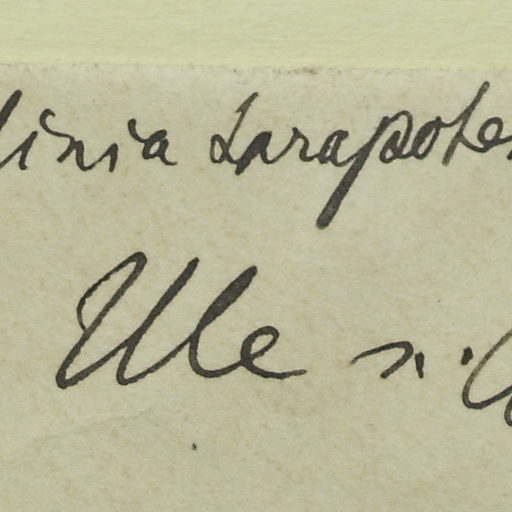 linia tarapote
Ule n.